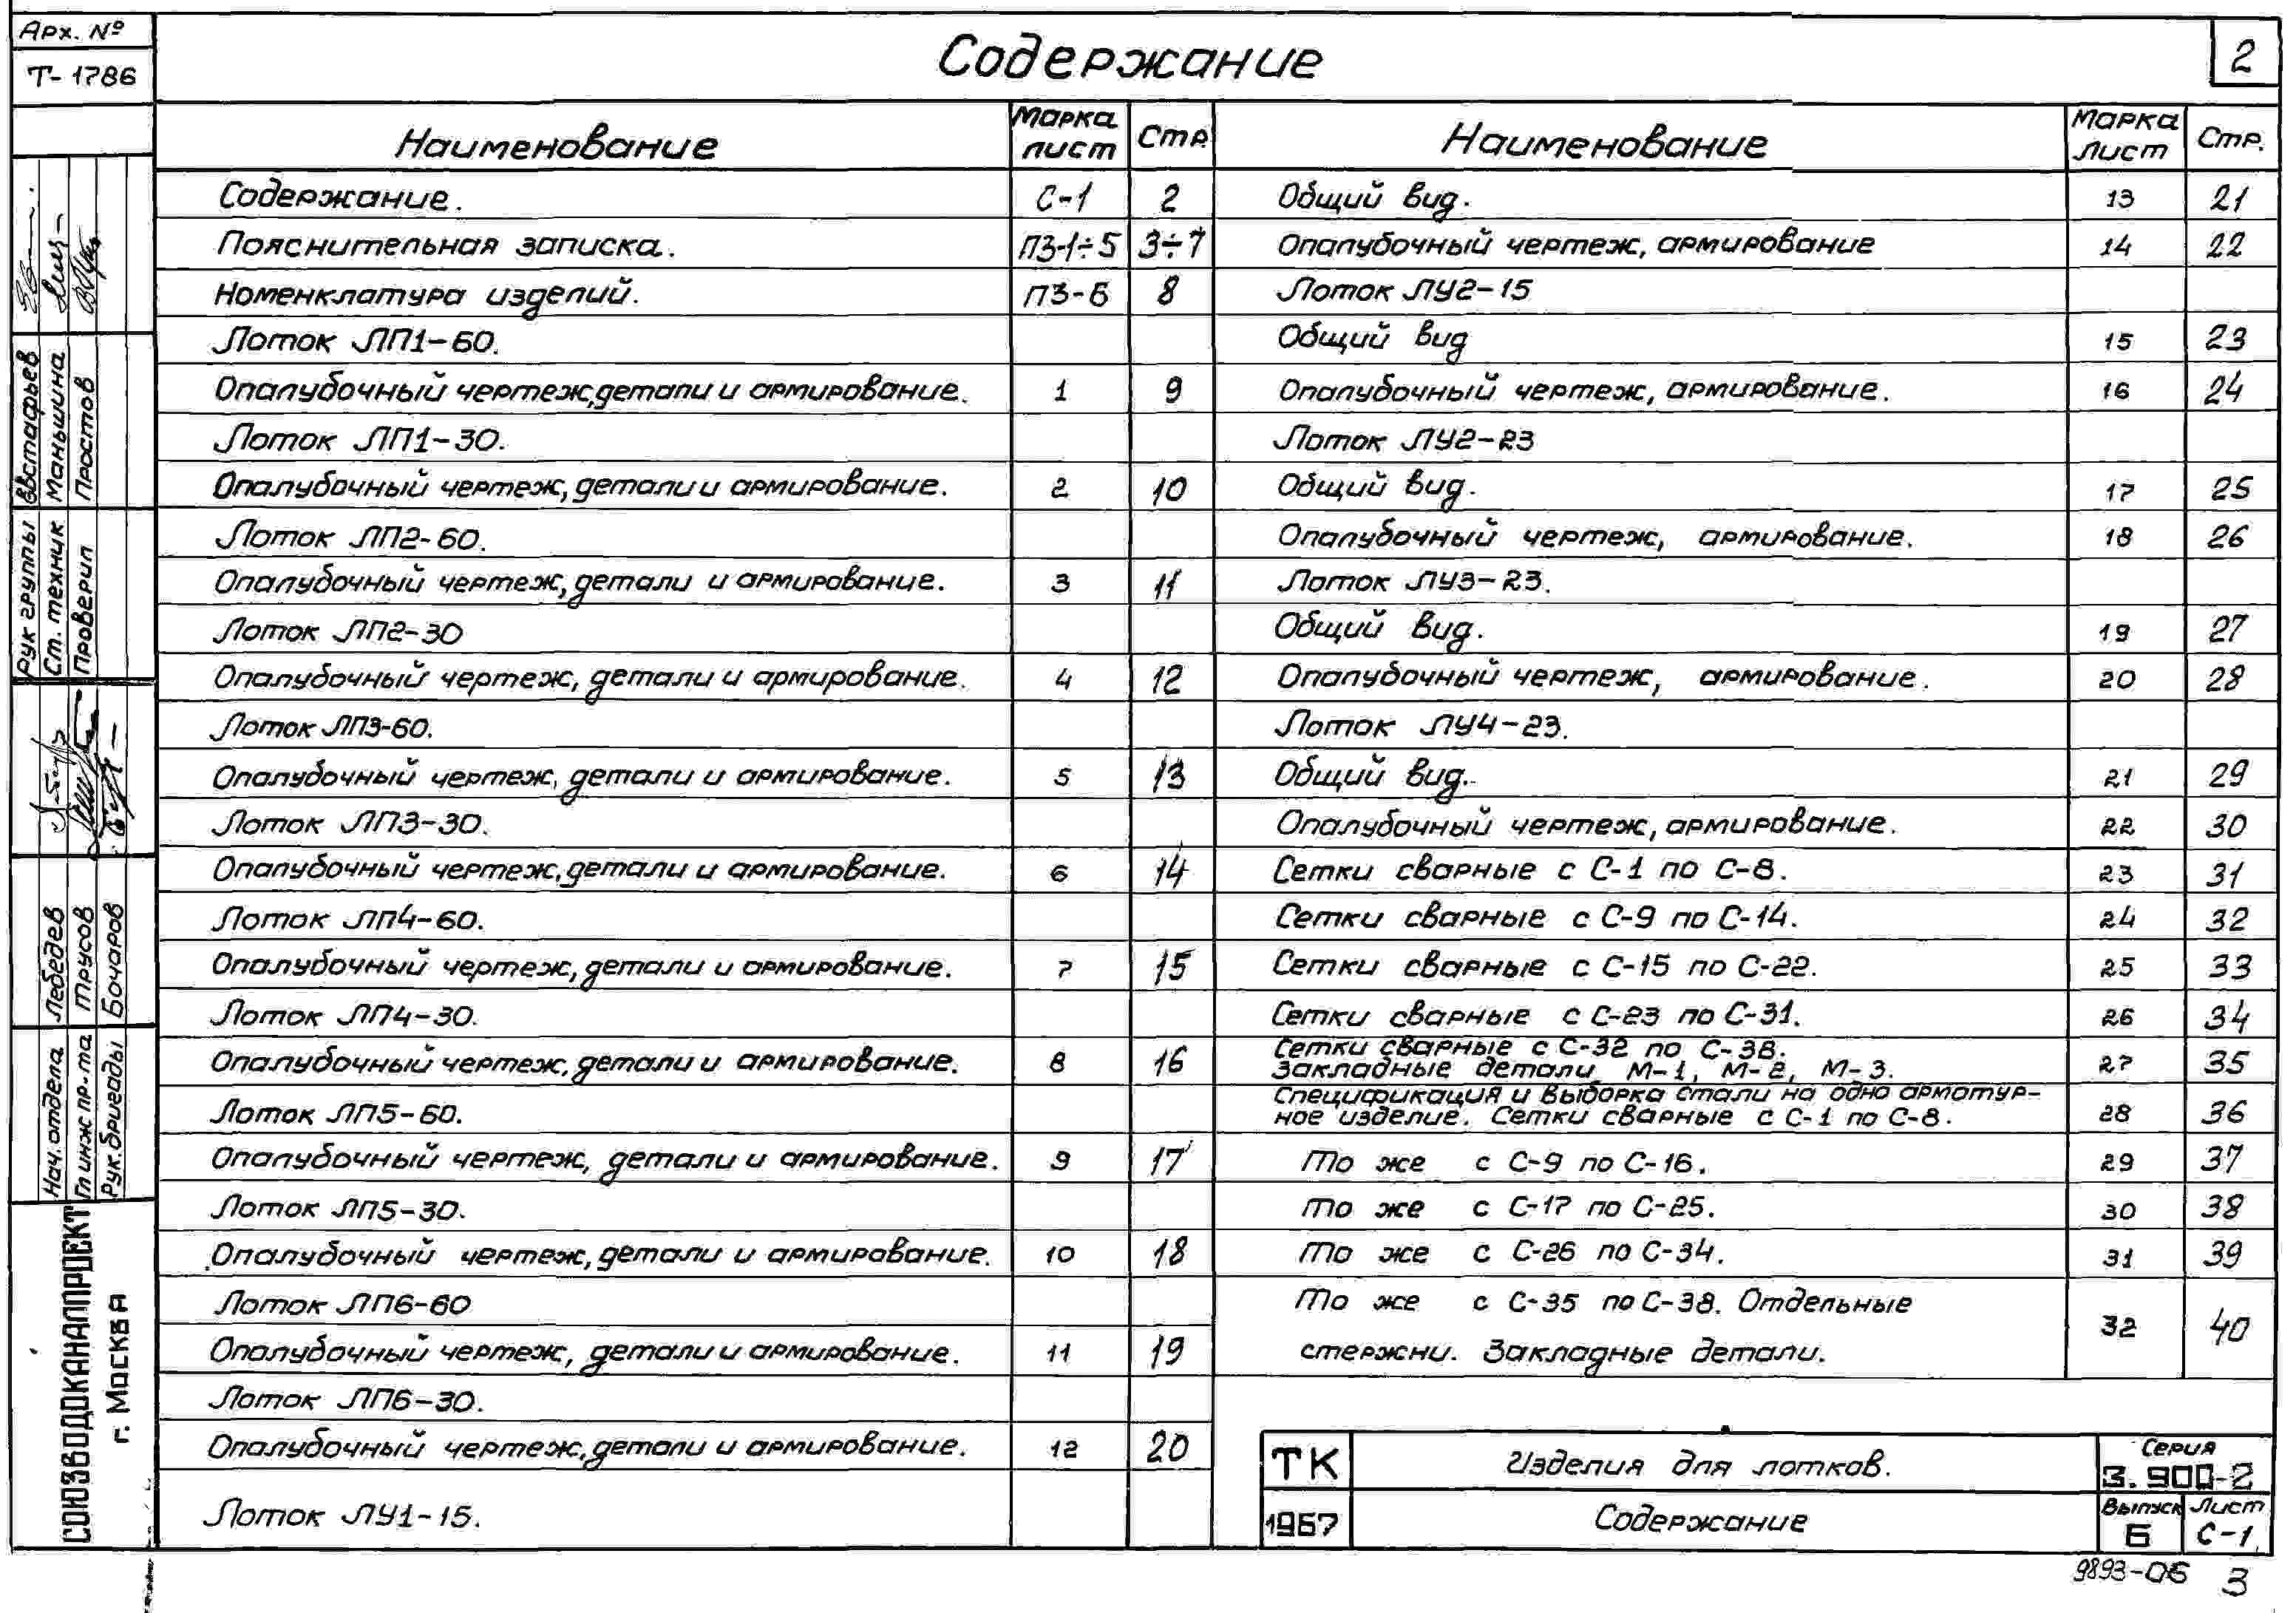 Арх. №
Т-1786
Содержание
2
Наименование
Марка лист
Стр.
Содержание. С-1 2
Пояснительная записка. ПЗ-1÷5 3÷7
Номенклатура изделий. ПЗ-6 8
Лоток ЛП1-60.
Опалубочный чертеж, детали и армирование. 1 9
Лоток ЛП1-30.
Опалубочный чертеж, детали и армирование. 2 10
Лоток ЛП2-60.
Опалубочный чертеж, детали и армирование. 3 11
Лоток ЛП2-30
Опалубочный чертеж, детали и армирование. 4 12
Лоток ЛП3-60.
Опалубочный чертеж, детали и армирование. 5 13
Лоток ЛП3-30.
Опалубочный чертеж, детали и армирование. 6 14
Лоток ЛП4-60.
Опалубочный чертеж, детали и армирование. 7 15
Лоток ЛП4-30.
Опалубочный чертеж, детали и армирование. 8 16
Лоток ЛП5-60.
Опалубочный чертеж, детали и армирование. 9 17
Лоток ЛП5-30.
Опалубочный чертеж, детали и армирование. 10 18
Лоток ЛП6-60
Опалубочный чертеж, детали и армирование. 11 19
Лоток ЛП6-30.
Опалубочный чертеж, детали и армирование. 12 20
Лоток ЛУ1-15.
Наименование
Марка лист
Стр.
Общий вид. 13 21
Опалубочный чертеж, армирование 14 22
Лоток ЛУ2-15
Общий вид 15 23
Опалубочный чертеж, армирование. 16 24
Лоток ЛУ2-23
Общий вид. 17 25
Опалубочный чертеж, армирование. 18 26
Лоток ЛУ3-23.
Общий вид. 19 27
Опалубочный чертеж, армирование. 20 28
Лоток ЛУ4-23.
Общий вид. 21 29
Опалубочный чертеж, армирование. 22 30
Сетки сварные с С-1 по С-8. 23 31
Сетки сварные с С-9 по С-14. 24 32
Сетки сварные с С-15 по С-22. 25 33
Сетки сварные с С-23 по С-31. 26 34
Сетки сварные с С-32 по С-38.
Закладные детали М-1, М-2, М-3. 27 35
Спецификация и выборка стали на одно арматур-
ное изделие. Сетки сварные с С-1 по С-8. 28 36
То же с С-9 по С-16. 29 37
То же с С-17 по С-25. 30 38
То же с С-26 по С-34. 31 39
То же с С-35 по С-38. Отдельные
стержни. Закладные детали. 32 40
ТК
1967
Изделия для лотков.
Содержание
Серия
3.900-2
Выпуск
6
Лист
С-1
9893-06 3
Рук группы Евстафьев
Ст. техник Маньшина
Проверил Простов
Нач. отдела Лебедев
Гл инж пр-та Трусов
Рук. бригады Бочаров
СОЮЗВОДОКАНАЛПРОЕКТ
г. Москва